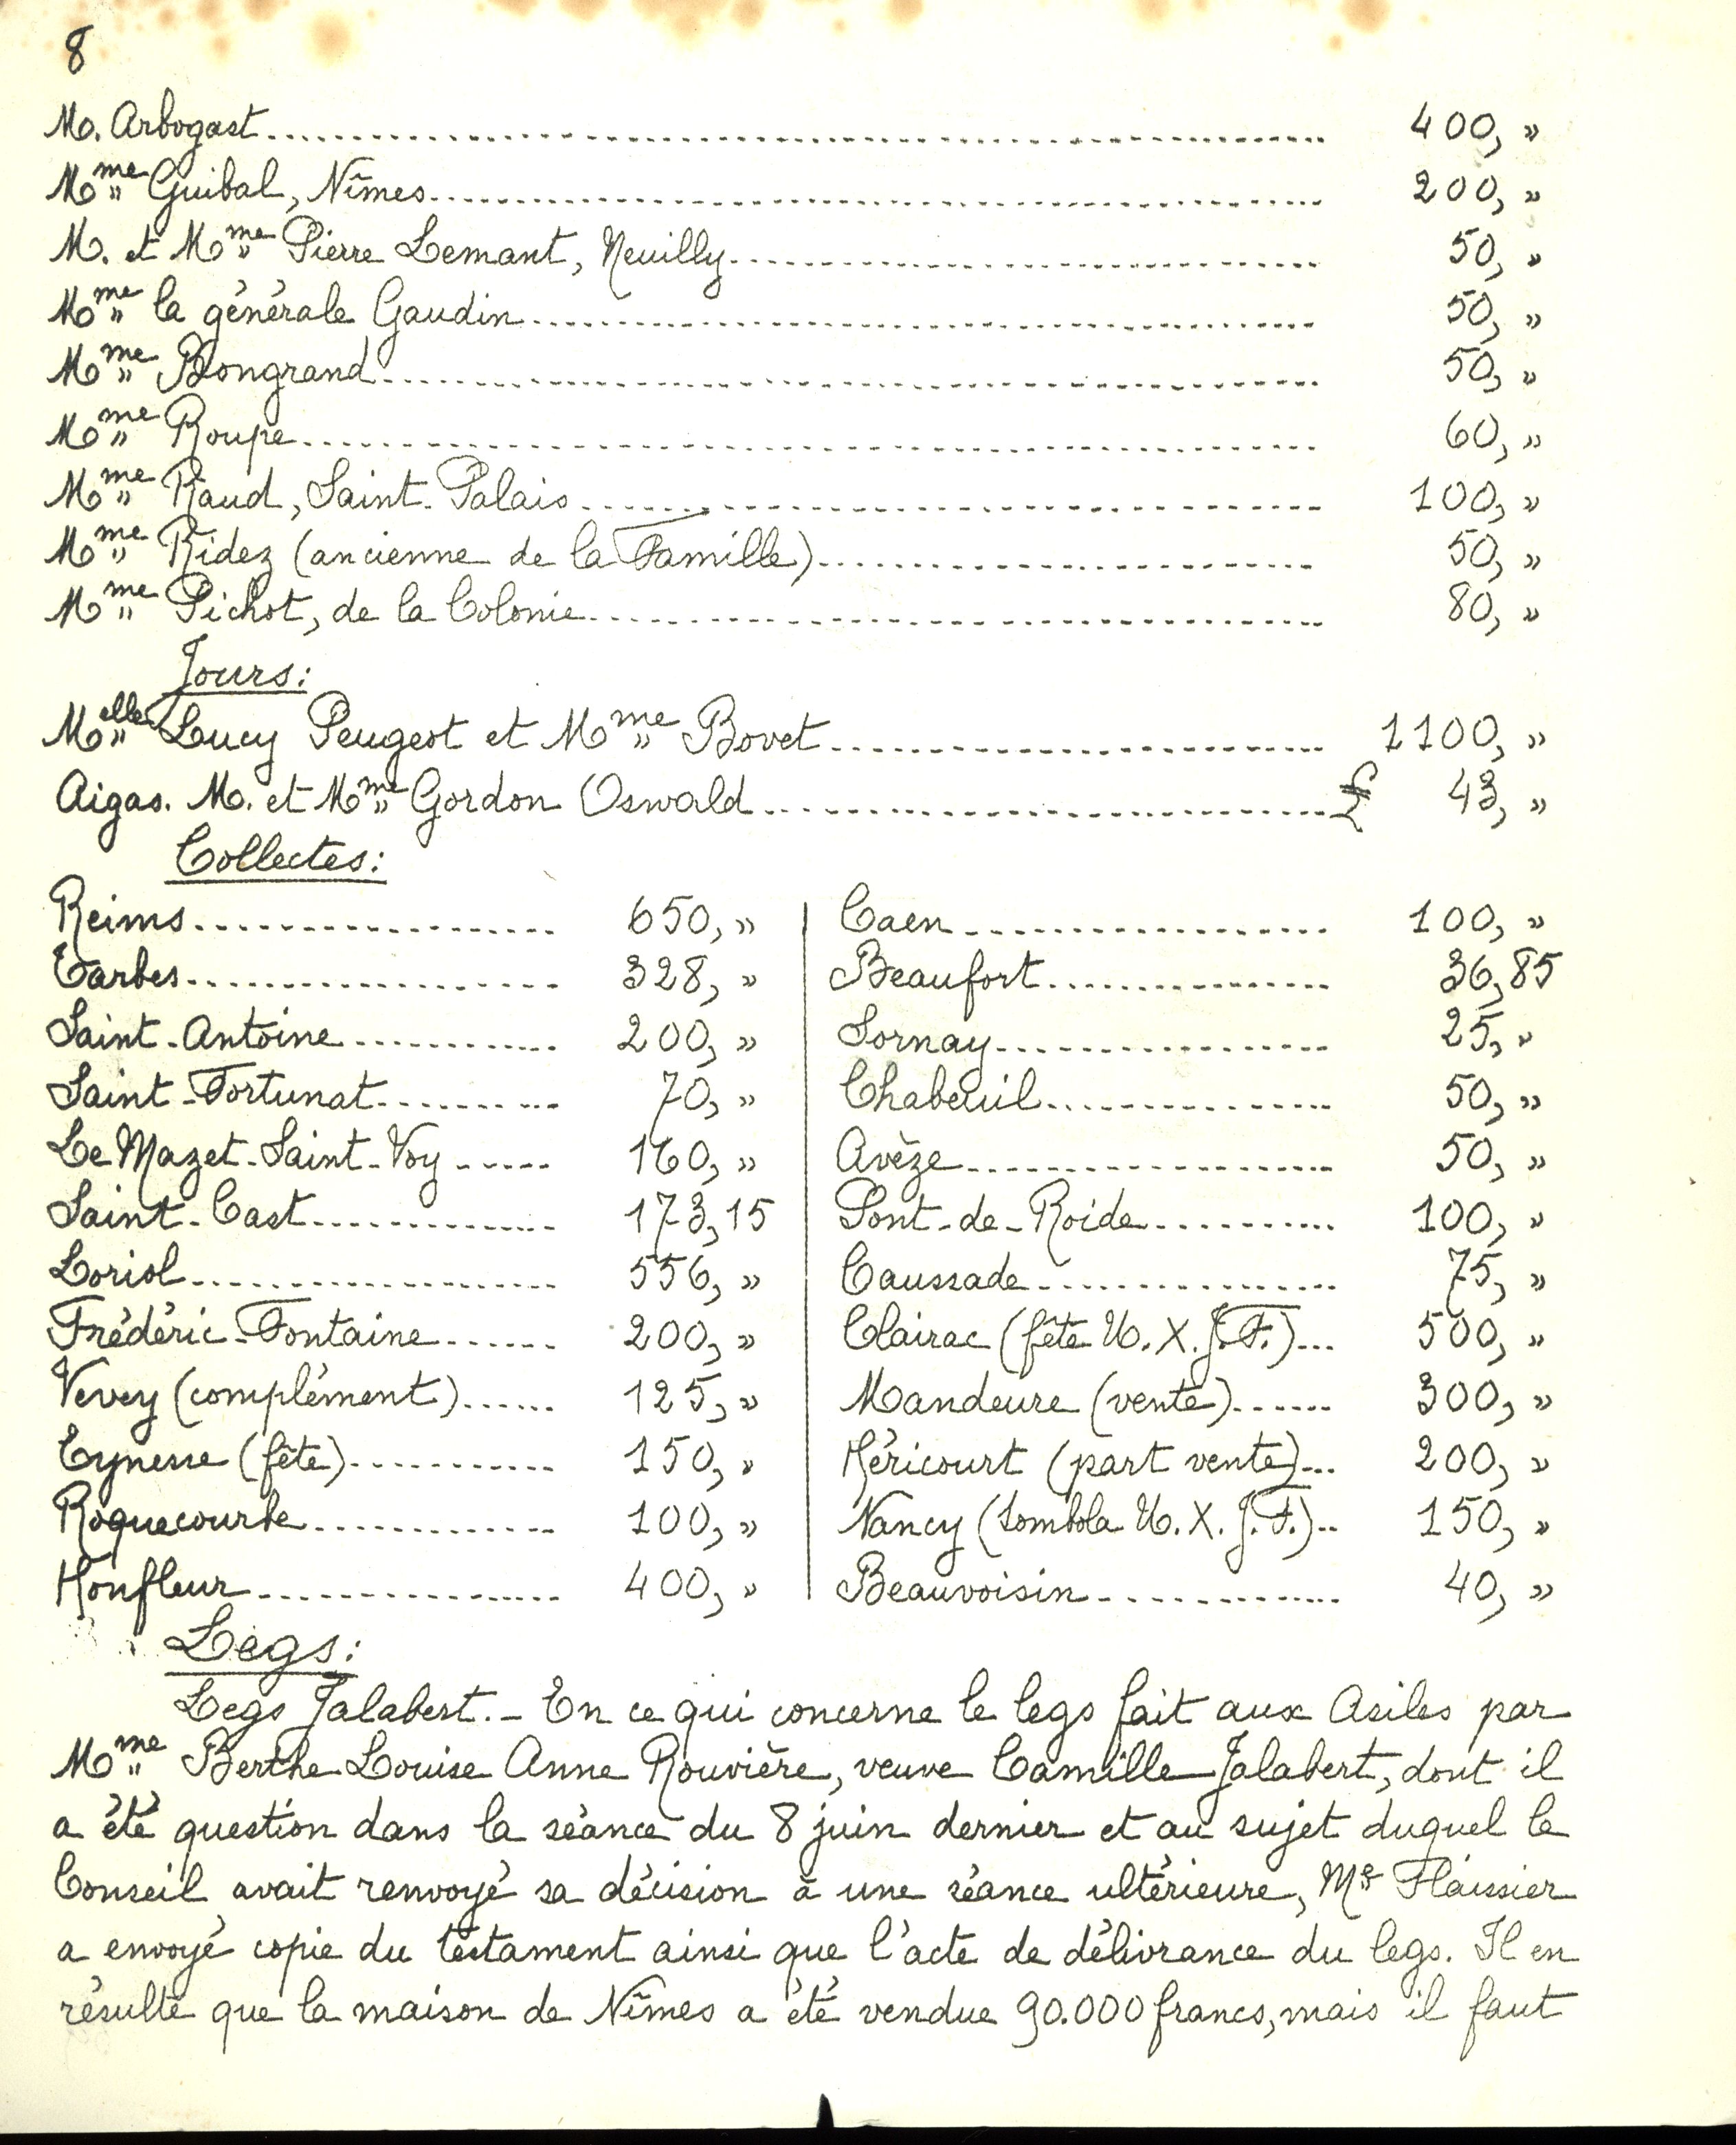 8
M. Arbogast 400, »
Mme Guibal, Nîmes 200, »
M. et Mme Pierre Lemant, Neuilly 50, »
Mme la générale Gaudin 50, »
Mme Bongrand 50, »
Mme Roupe 60, »
Mme Raud, Saint-Palais 100, »
Mme Ridez (ancienne de la Famille) 50, »
Mme Pichot, de la Colonie 80, »
Jours:
Melle Lucy Peugeot et Mme Bovet 1100, »
Aigas. M. et Mme Gordon Oswald £ 43, »
Collectes:
Reims 650, »
Tarbes 328, »
Saint-Antoine 200, »
Saint-Fortunat 70, »
Le Mazet-Saint-Voy 160, »
Saint-Cast 173,15
Loriol 556, »
Frédéric-Fontaine 200, »
Vevey (complément) 125, »
Eynesse (fête) 150, »
Roquecourbe 100, »
Honfleur 400, »
Caen 100, »
Beaufort 36,85
Sornay 25, »
Chabeuil 50, »
Avèze 50, »
Pont-de-Roide 100, »
Caussade 75, »
Clairac (fête U.X.J.F.) 500, »
Mandeure (vente) 300, »
Héricourt (part vente) 200, »
Nancy (tombola U.X.J.F.) 150, »
Beauvoisin 40, »
Legs:
Legs Jalabert. - En ce qui concerne le legs fait aux Asiles par
Mme Berthe Louise Anne Rouvière, veuve Camille Jalabert, dont il
a été question dans la séance du 8 juin dernier et au sujet duquel le
Conseil avait renvoyé sa décision à une séance ultérieure, Mr Flaissier
a envoyé copie du testament ainsi que l'acte de délivrance du legs. Il en
résulte que la maison de Nîmes a été vendue 90.000 francs, mais il faut